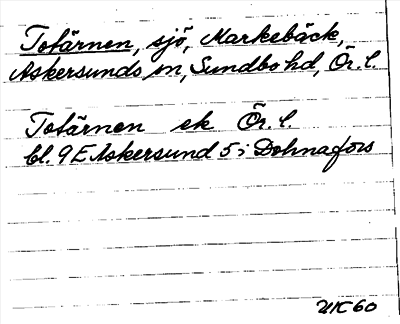 Totärnen, sjö, Markebäck,
Askersunds sn, Sundbo hd, Ör. l.
Totärnen ek Ör. l.
bl. 9E Askersund 5i Dohnafors
UK 60